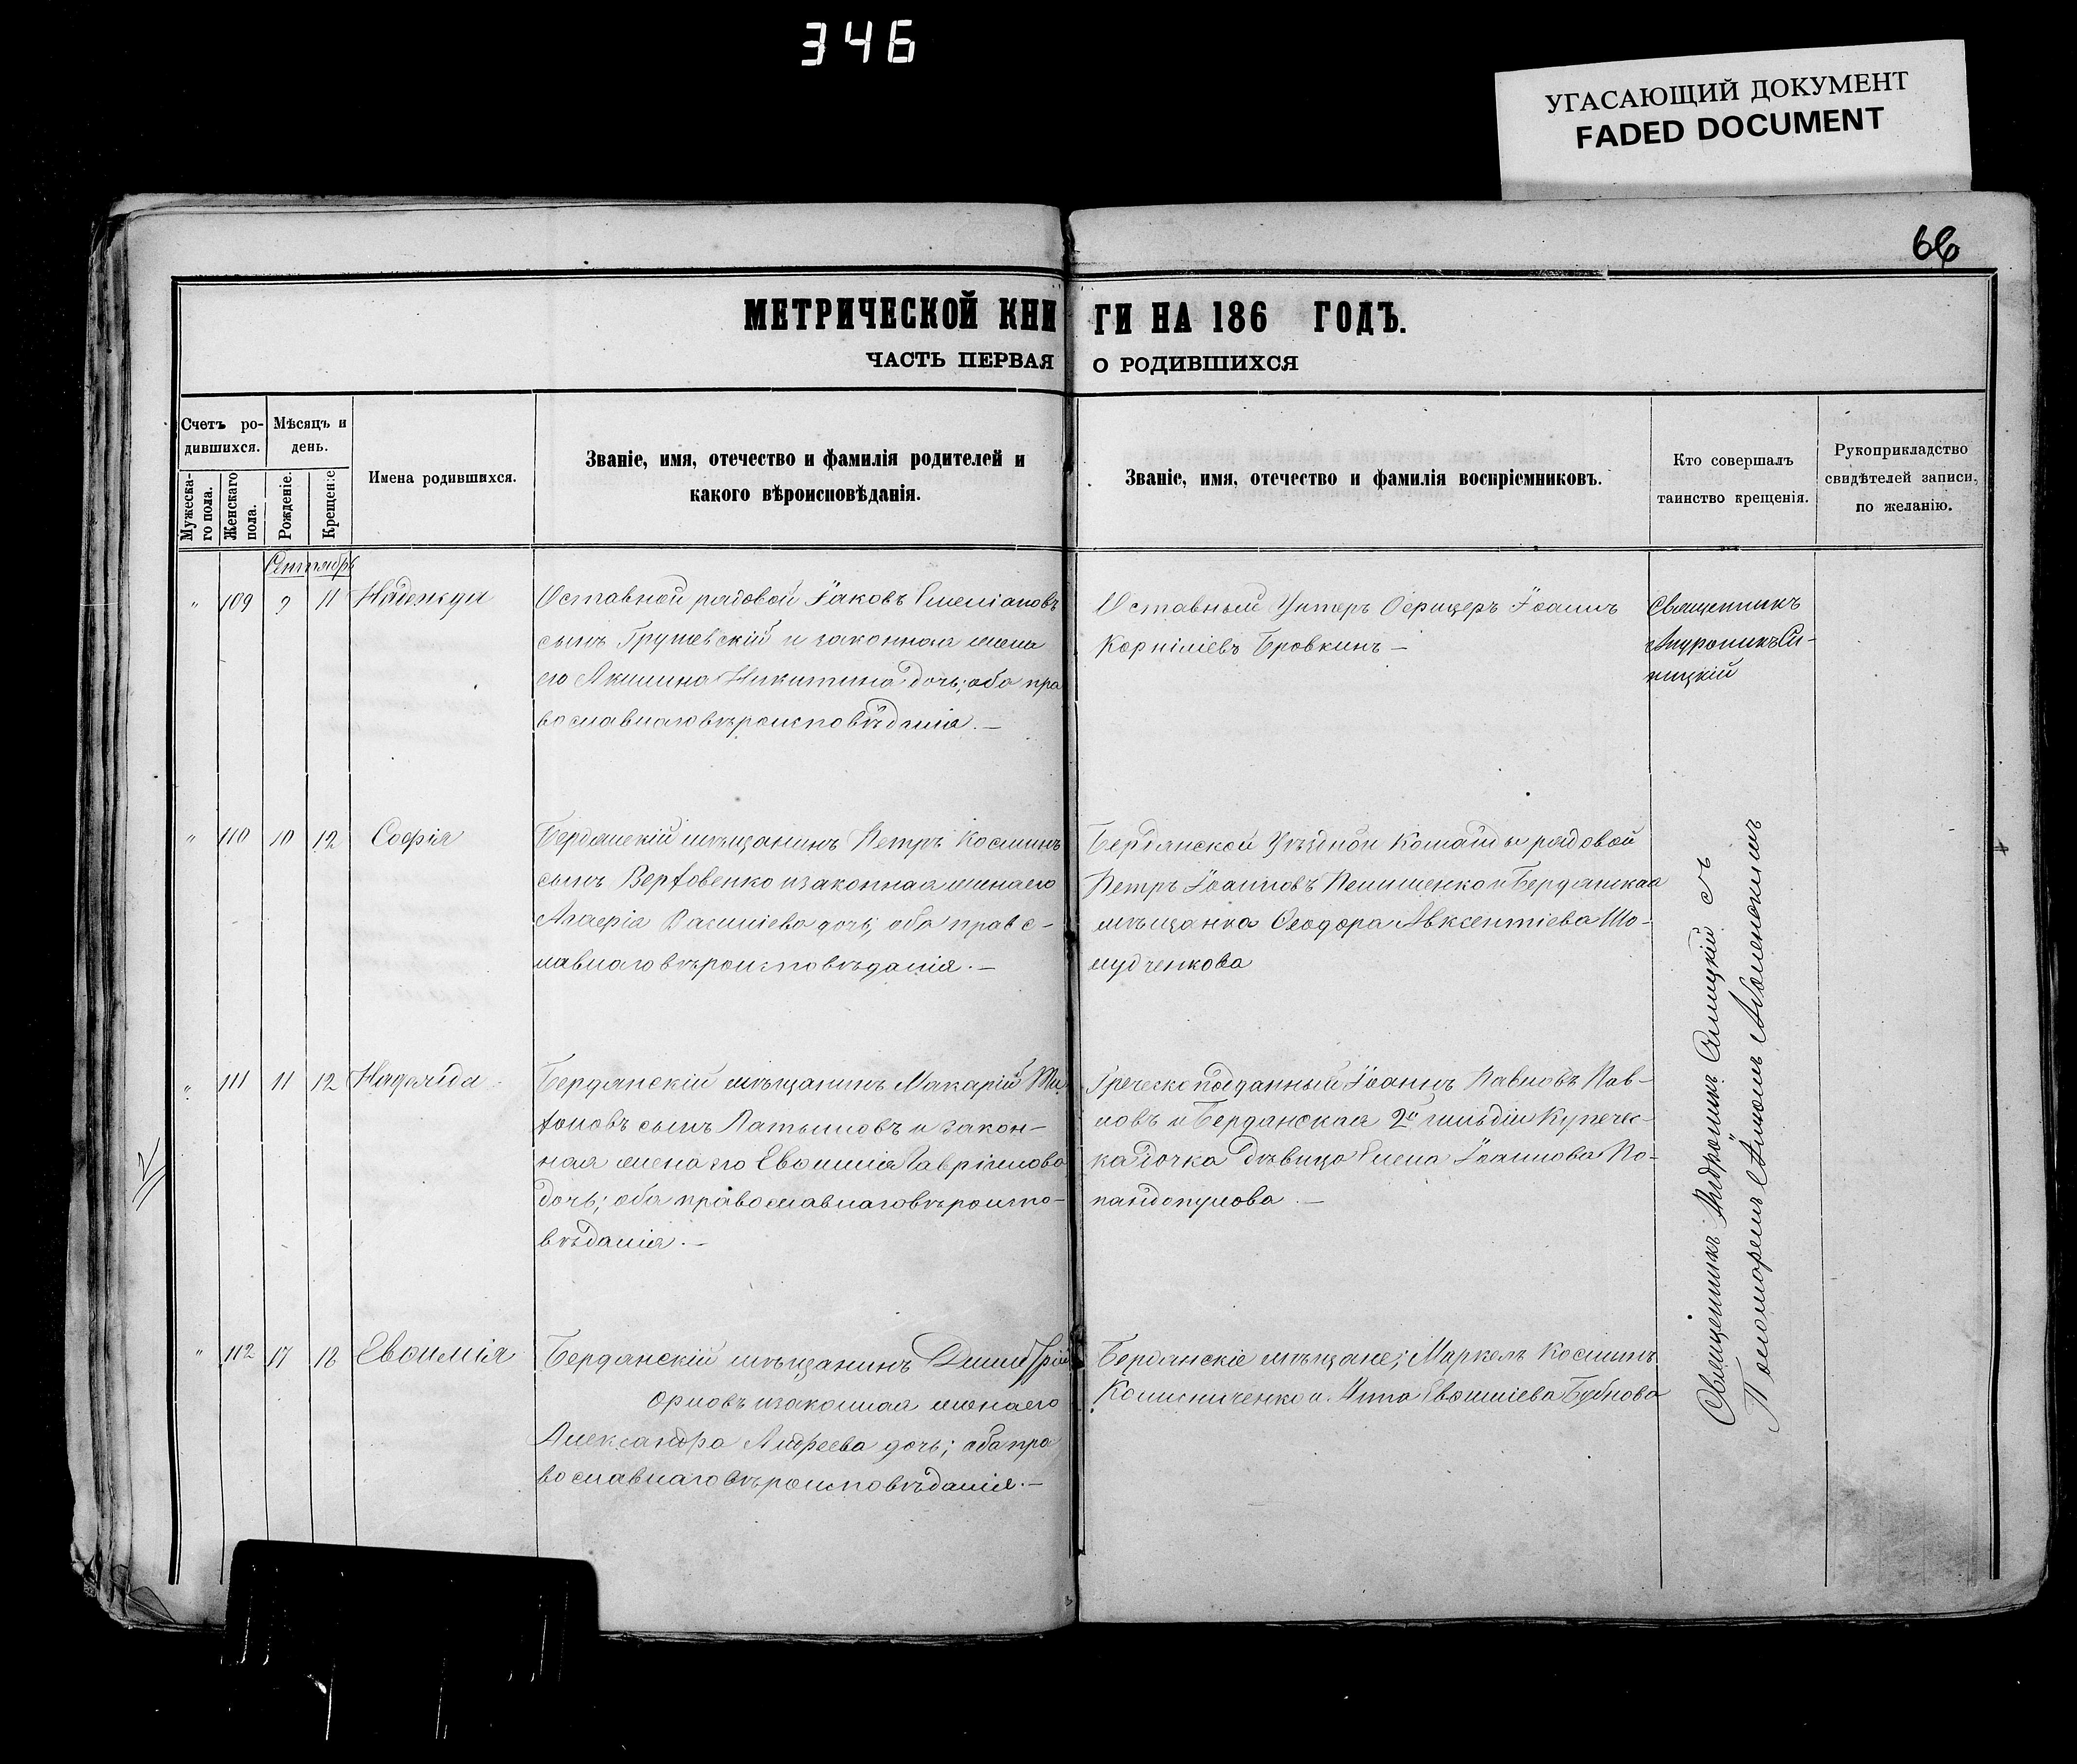 346
УГАСАЮЩИЙ ДОКУМЕНТ
FADED DOCUMENT
66
МЕТРИЧЕСКОЙ КНИГИ НА 186 ГОДЪ.
ЧАСТЬ ПЕРВАЯ О РОДИВШИХСЯ
Счетъ ро-
дившихся.
Мужеска-
го пола.
Женскаго
пола.
Мѣсяцъ и
день.
Рожденіе.
Крещеніе
Имена родившихся.
Званіе, имя, отечество и фамилія родителей и
какого вѣроисповѣданія.
Званіе, имя, отечество и фамилія воспріемниковъ.
Кто совершалъ
таинство крещенія.
Рукоприкладство
свидѣтелей записи,
по желанію.
Сентябрь
" 109 9 11 Надежда
Оставной рядовой Іаковъ Емеліановъ
сынъ Грушевскій и законная жена
его Акилина Никитина дочь; оба пра
вославнаго вѣроисповѣданія. —
Оставный Унтеръ Офицеръ Іоаннъ
Корниліевъ Бровкинъ —
Священникъ
Андроникъ Си-
ницкій
" 110 10 12 Софія
Бердянскій мѣщанинъ Петръ Косминъ
сынъ и законная жена его
Василіева дочь; оба правс-
лавнаго вѣроисповѣданія. —
Бердянской Уѣздной Команды рядовой
Петръ Іоанновъ и Бердянская
мѣщанка Ѳеодора Авксентіева Шо-
лудченкова
" 111 11 12
Бердянскій мѣщанинъ Макарій Ти-
фоновъ сынъ Латышовъ и закон-
ная жена его Евфимія Гавріилова
дочь; оба православнаго вѣроиспо-
вѣданія. —
Греческоподданный Іоаннъ Павловъ Пав-
ловъ и Бердянская 2й гильдіи Купечес-
кая дочка дѣвица Елена Іоаннова По-
пандопулова. —
" 112 17 18 Евфимія
Бердянскій мѣщанинъ Димитрій
Орловъ и законная жена его
Александра Андреева дочь; оба пра
вославнаго вѣроисповѣданія. —
Бердянскіе мѣщане; Маркелъ Косминъ
и Анна Евфиміева Бубнова
Священникъ Андроникъ Синицкій съ
Пономаремъ